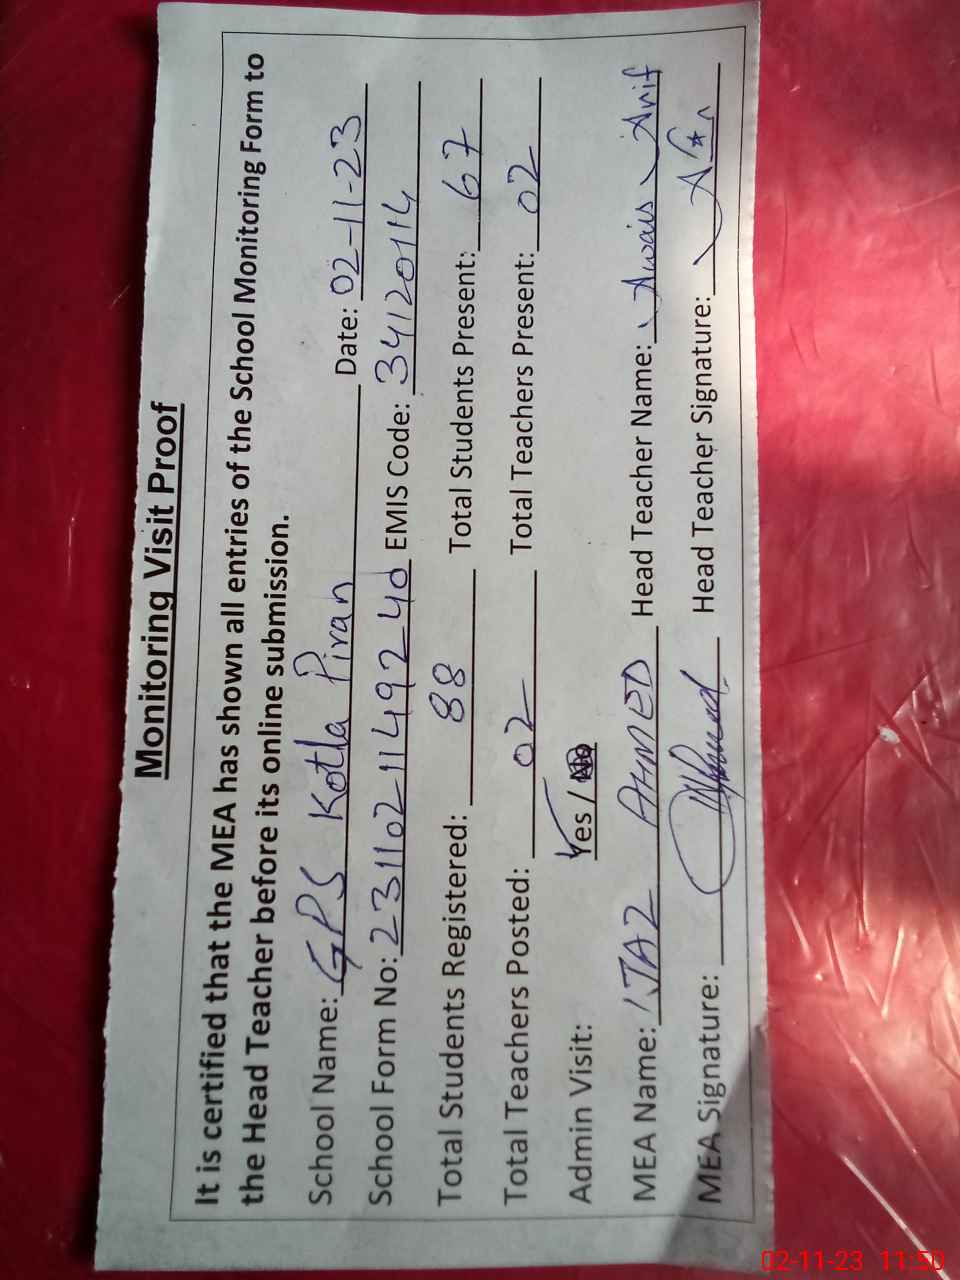 Monitoring Visit Proof
It is certified that the MEA has shown all entries of the School Monitoring Form to
the Head Teacher before its online submission.
School Name: GPS Kotla Piran Date: 02-11-23
School Form No: 2311021149240 EMIS Code: 34120114
Total Students Registered: 88 Total Students Present: 67
Total Teachers Posted: 02 Total Teachers Present: 02
Admin Visit: Yes / No
MEA Name: IJAZ AHMED Head Teacher Name: Awais Arif
MEA Signature: Head Teacher Signature:
02-11-23 11:50